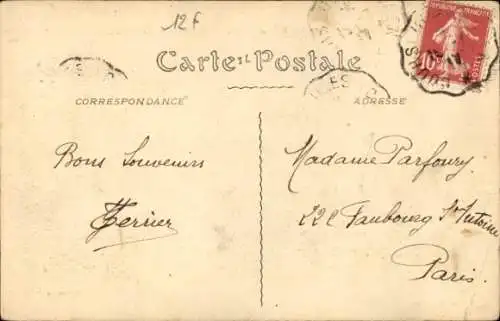 12F
Carte Postale
CORRESPONDANCE
ADRESSE
REPUBLIQUE FRANÇAISE
10
POSTES
Bons Souvenirs
Madame Parfoury
222 Faubourg St Antoine
Paris.